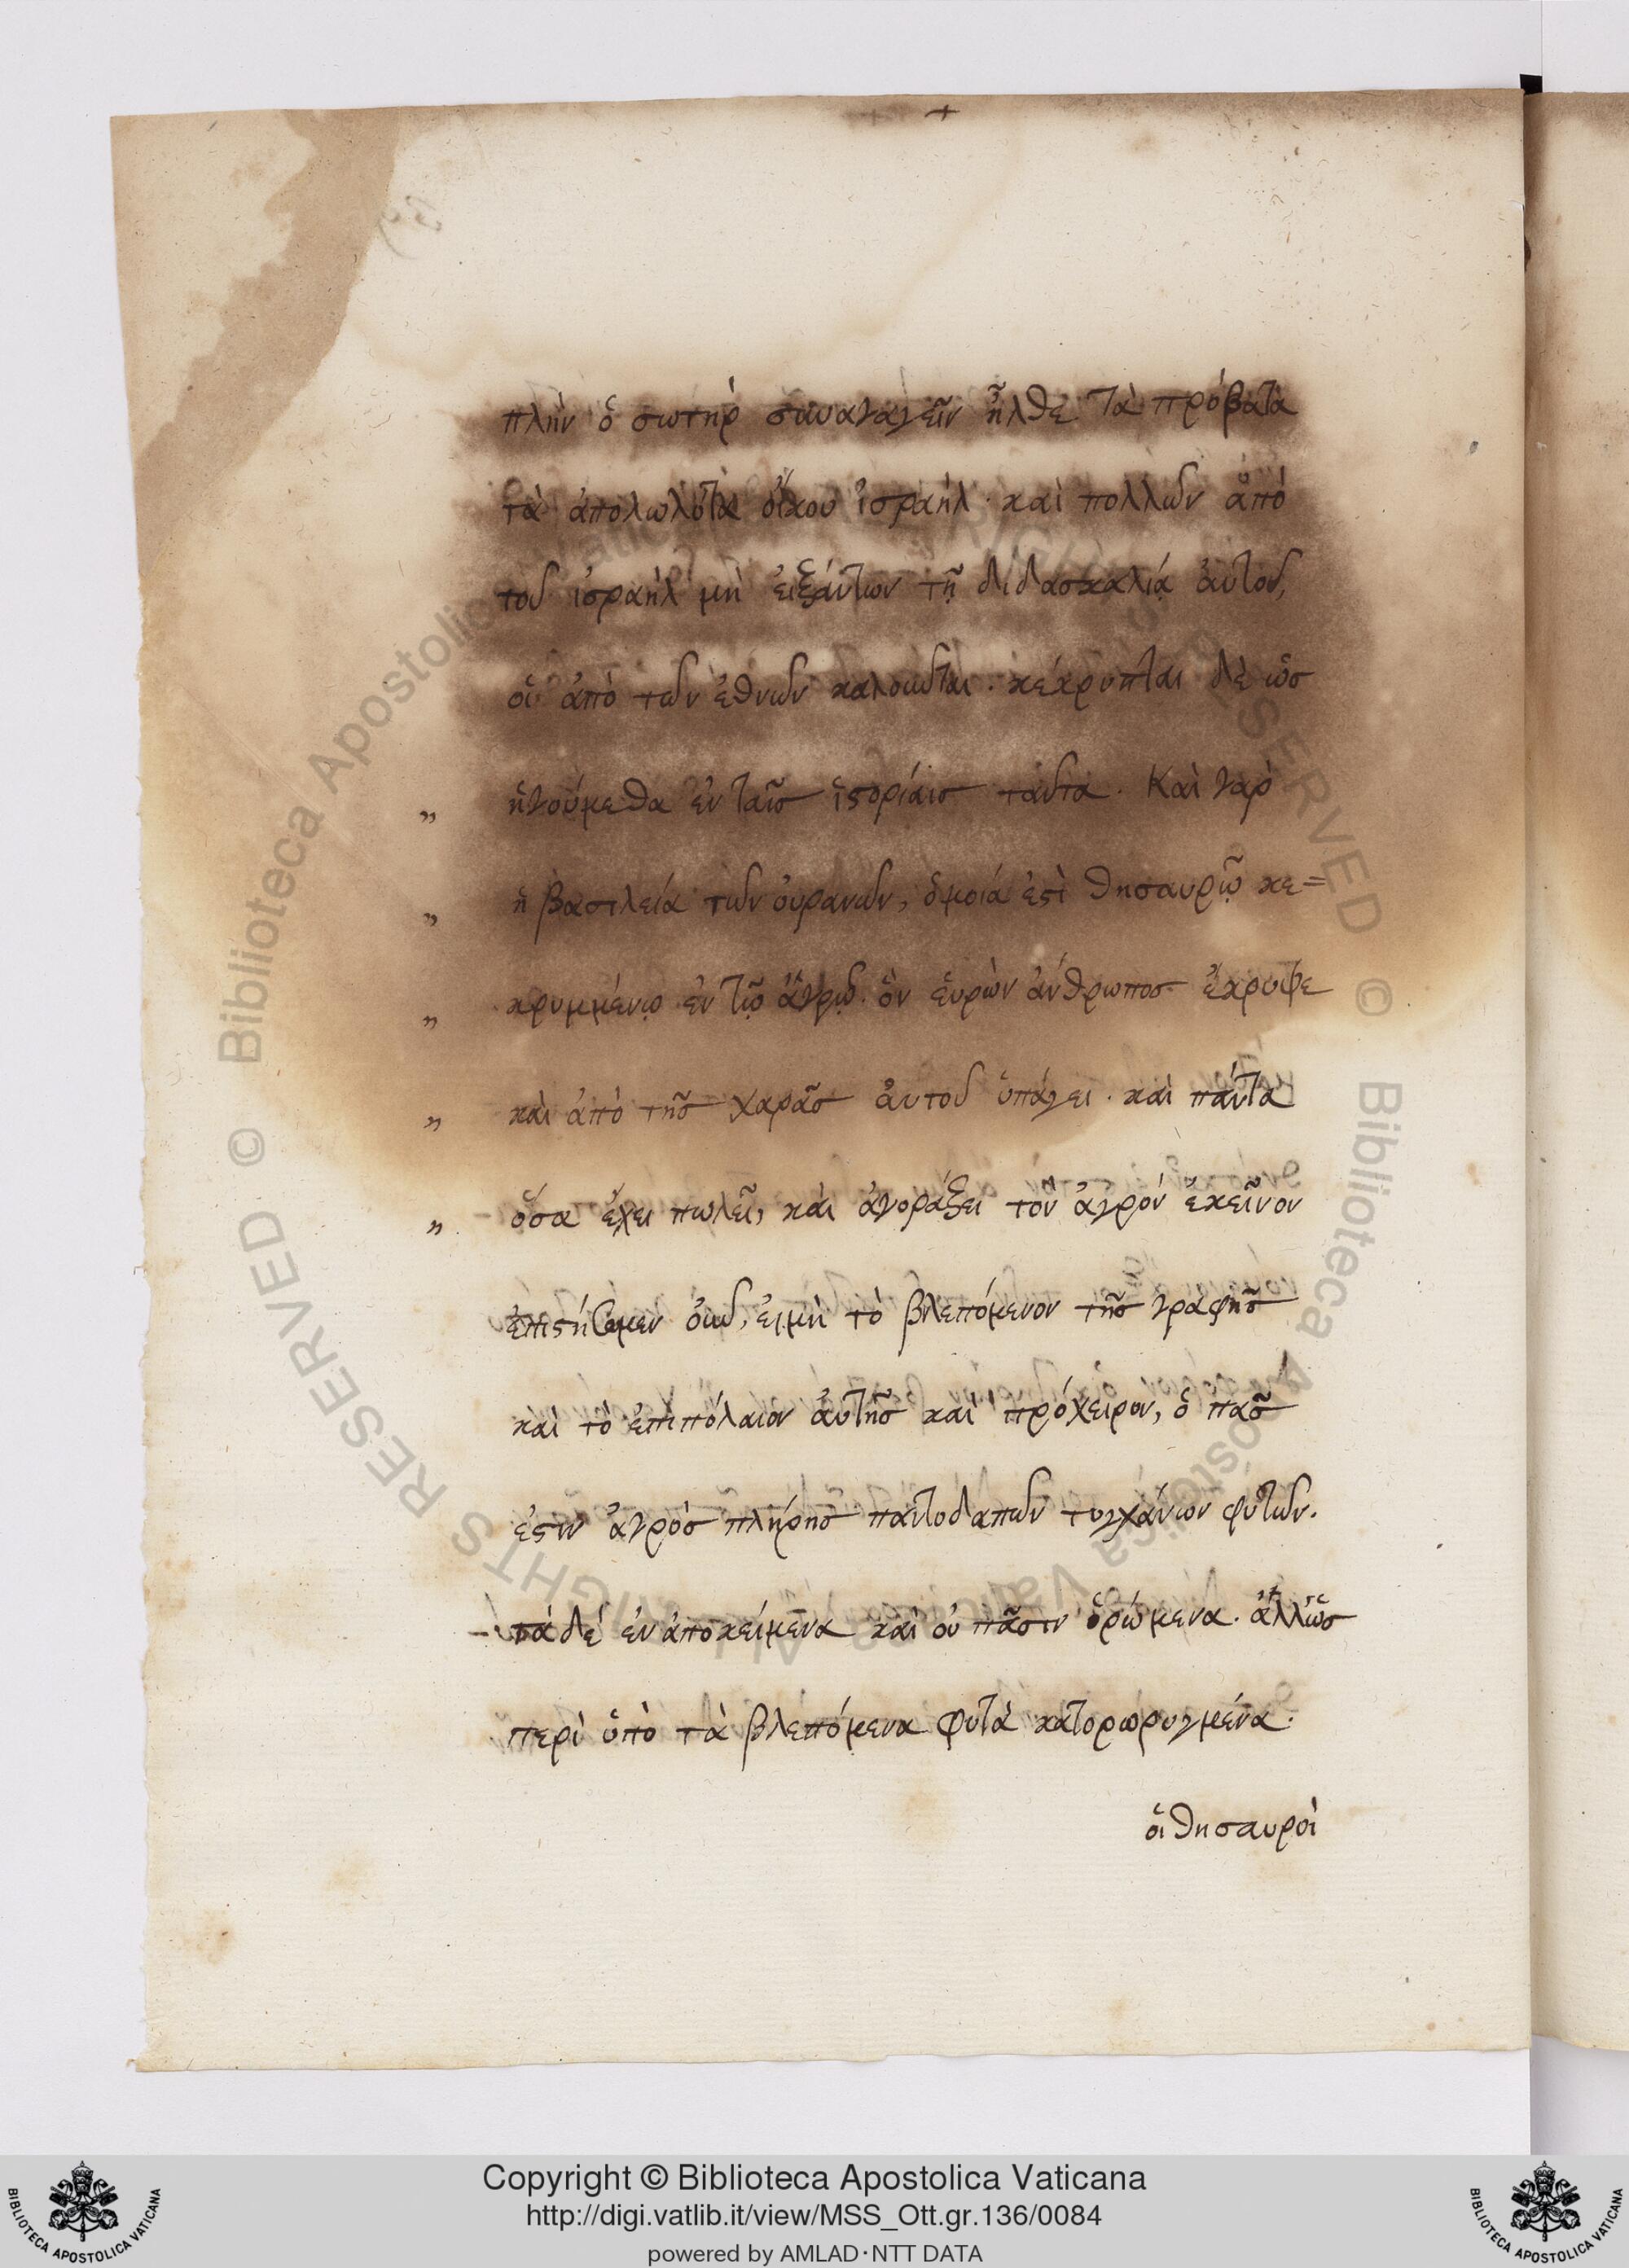 πλὴν ὁ σωτὴρ συναγαγεῖν ἦλθε τὰ πρόβατα
τὰ ἀπολωλότα οἴκου ἰσραήλ· καὶ πολλῶν ἀπὸ
τοῦ ἰσραὴλ μὴ εἰξάντων τῇ διδασκαλίᾳ αὐτοῦ,
οἱ ἀπὸ τῶν ἐθνῶν καλοῦνται. κέκρυπται δὲ ὡς
„ ἡγούμεθα ἐν ταῖς ἱστορίαις ταῦτα. Καὶ γὰρ
„ ἡ βασιλεία τῶν οὐρανῶν, ὁμοιά ἐστὶ θησαυρῷ κε=
„ κρυμμένῳ ἐν τῷ ἀγρῷ. ὃν εὑρὼν ἄνθρωπος ἔκρυψε
„ καὶ ἀπὸ τῆς χαρᾶς αὐτοῦ ὑπάγει· καὶ πάντα
„ ὅσα ἔχει πωλεῖ, καὶ ἀγοράζει τὸν ἀγρὸν ἐκεῖνον
ἐπιστήσωμεν οὖν, εἰ μὴ τὸ βλεπόμενον τῆς γραφῆς
καὶ τὸ ἐπιπόλαιον αὐτῆς καὶ πρόχειρον, ὁ πᾶς
ἐστιν ἀγρὸς πλήρης παντοδαπῶν τυγχάνων φυτῶν.
τὰ δὲ ἐναποκείμενα καὶ οὐ πᾶσιν ὁρώμενα. ἀλλ' ὡς
περὶ ὑπὸ τὰ βλεπόμενα φυτὰ κατορωρυγμένα.
οἱ θησαυροὶ
Copyright © Biblioteca Apostolica Vaticana
http://digi.vatlib.it/view/MSS_Ott.gr.136/0084
powered by AMLAD·NTT DATA